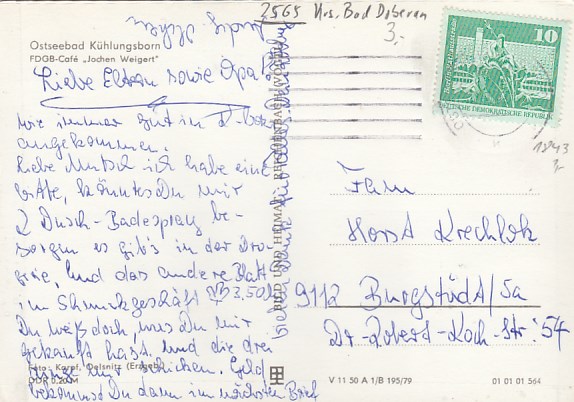 2565 Krs. Bad Doberan
3,-
Ostseebad Kühlungsborn
FDGB-Café „Jochen Weigert"
Liebe Eltern sowie Opa!
wie immer gut in
angekommen.
Liebe Mutsch ich habe eine
Bitte, könntest Du mir
2 Dusch-Badespray be-
sorgen es gibt's in der Dro-
gerie, und das andere Blatt
im Schmuckgeschäft 3,50
Du weißt doch, was Du mir
gekauft hast. Und die drei
Dinge mir schicken. Geld
bekommst Du dann im nächsten Brief
Foto: Karpf, Oelsnitz (Erzgeb.)
DDR 0,20 M
BILD UND HEIMAT REICHENBACH (VOGTL)
10
DEUTSCHE DEMOKRATISCHE REPUBLIK
18943
3,-
Fam
Horst Krechlok
9112 Burgstädt/Sa
Dr-Robert-Koch-Str. 54
V 11 50 A 1/B 195/79
01 01 01 564